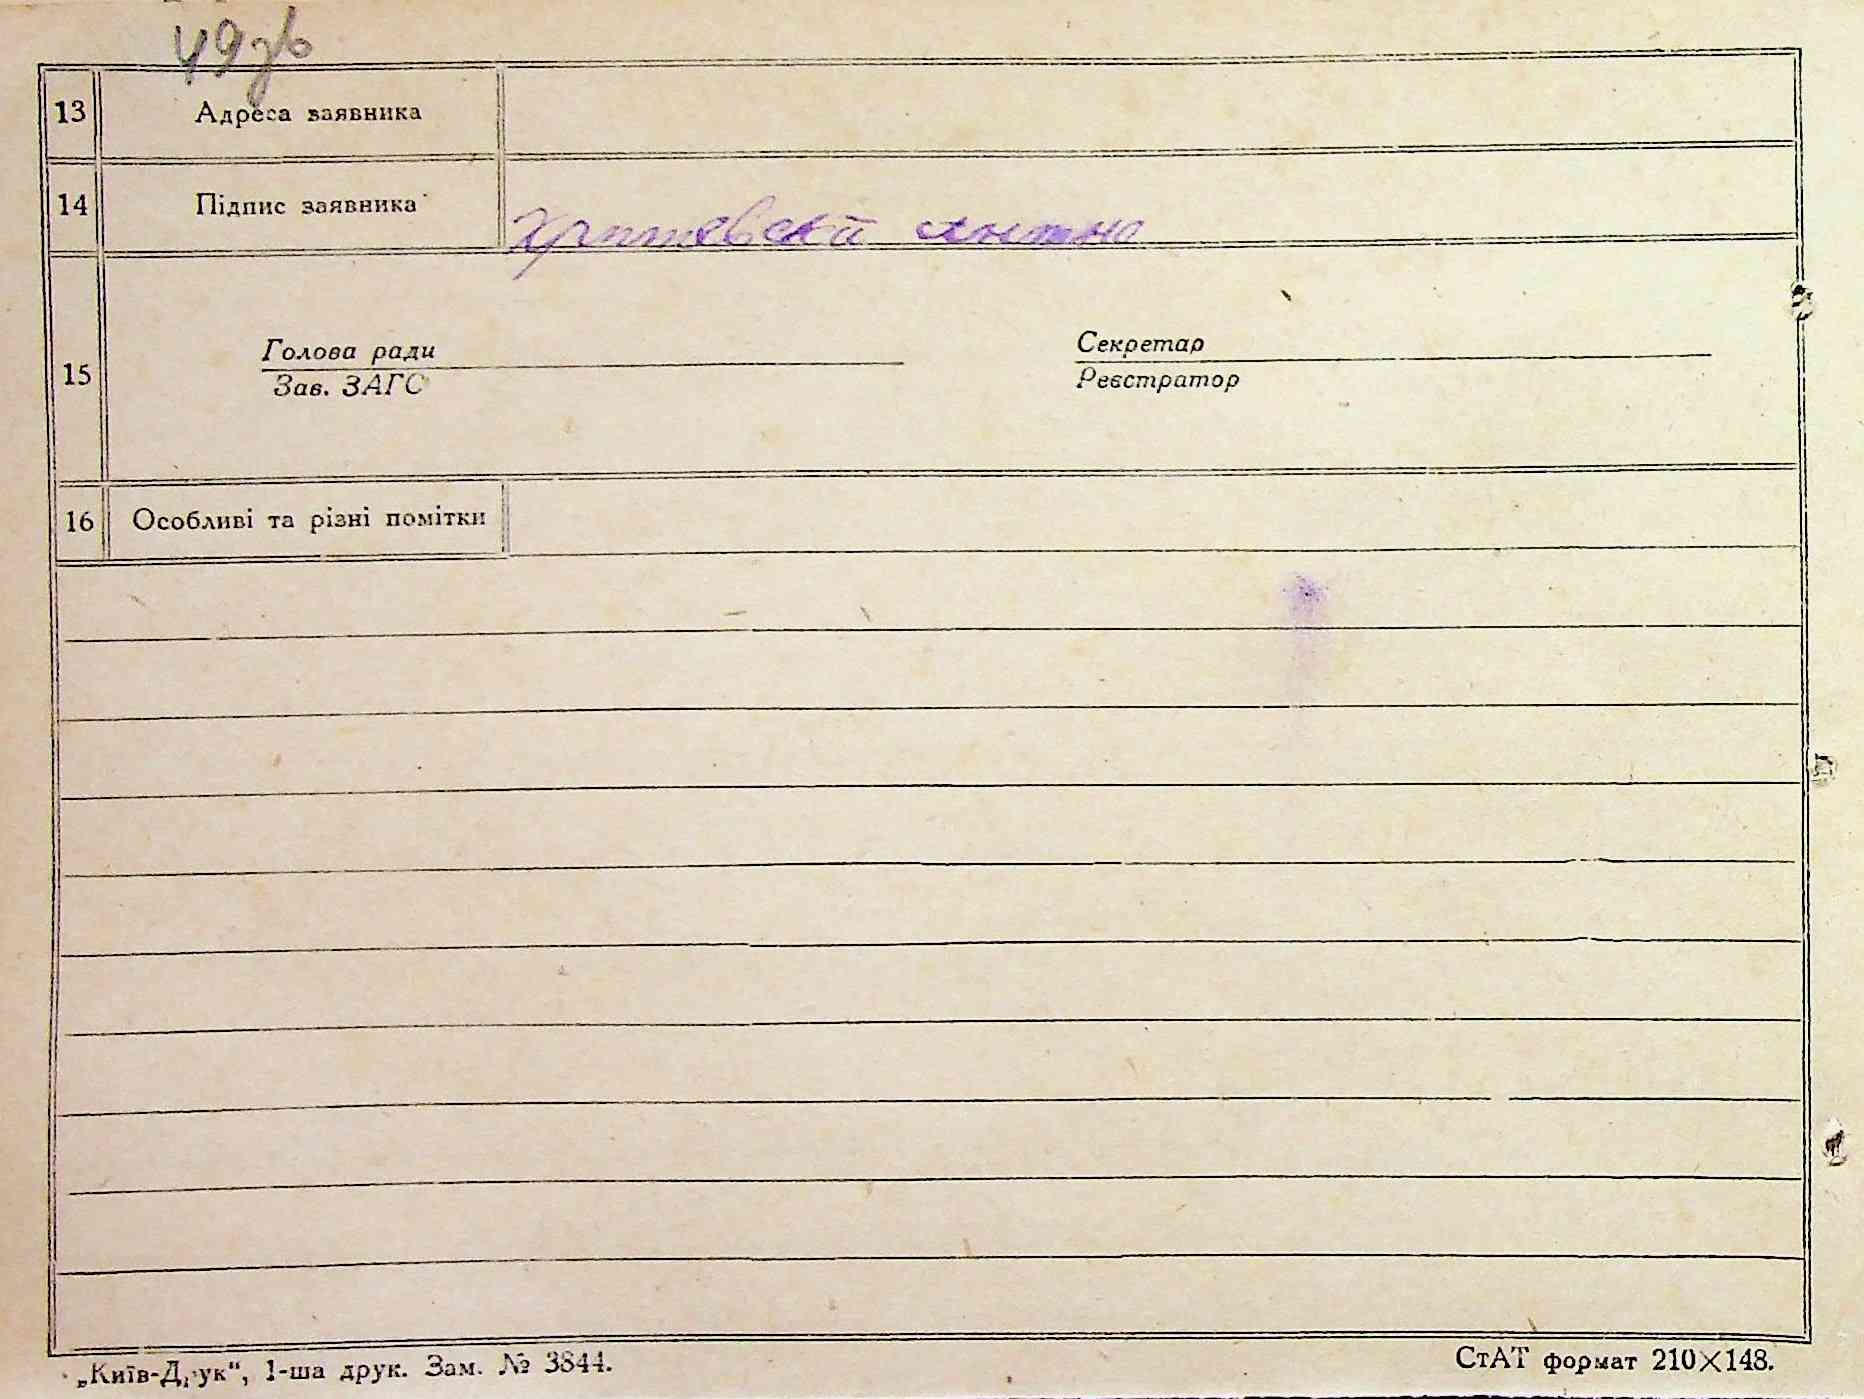 49зв
13 Адреса заявника
14 Підпис заявника
15 Голова ради Секретар
Зав. ЗАГС Реєстратор
16 Особливі та різні помітки
„Київ-Друк“, 1-ша друк. Зам. № 3844. СтАТ формат 210×148.